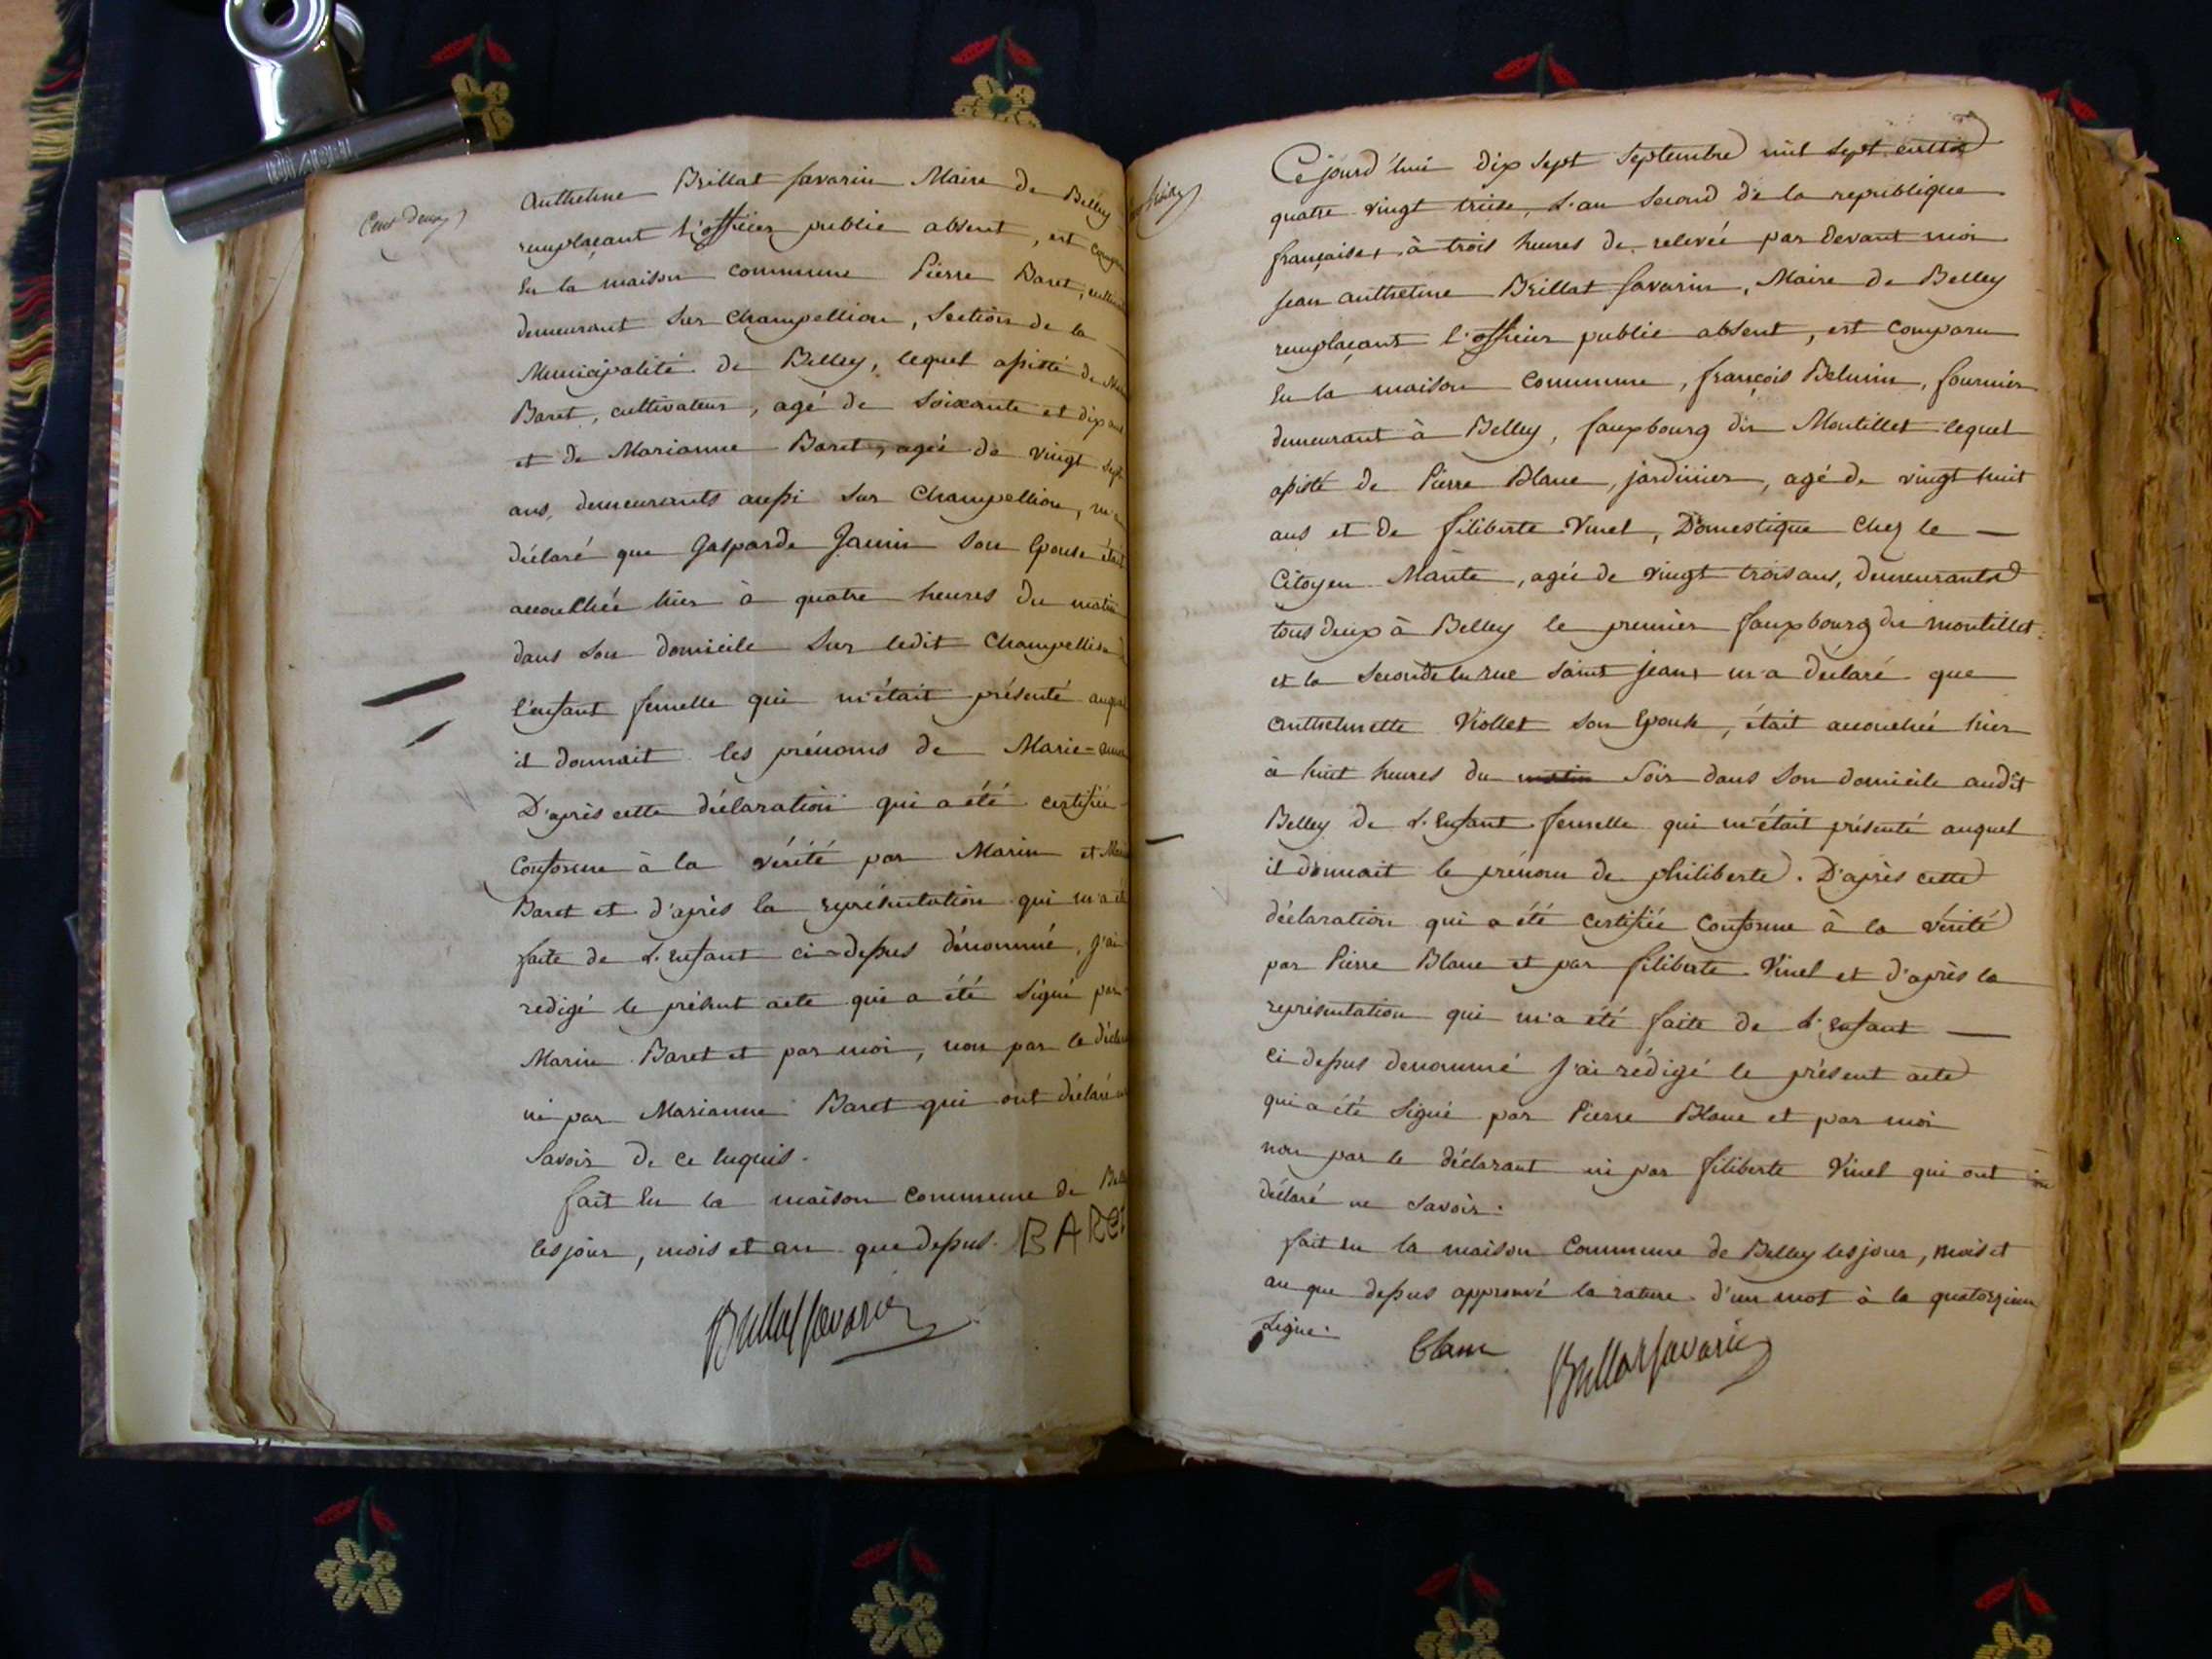 Cent deux
Anthelme Brillat Savarin Maire de Belley
remplaçant l'officier public absent, est
En la maison commune Pierre Baret,
demeurant sur Champellion, Section de la
Municipalité de Belley, lequel assisté de
Baret, cultivateur, agé de Soixante et dix
et de Marianne Baret, agée de vingt sept
ans, demeurants aussi sur Champellion, m'a
déclaré que Gasparde Jannin son Epouse était
accouchée hier à quatre heures du matin
dans son domicile sur ledit Champellion
l'enfant femelle qui m'était présenté auquel
il donnait les prénoms de Marie=anne
D'après cette déclaration qui a été certifiée
Conforme à la vérité par Marin et
Baret et d'après la représentation qui m'a été
faite de L'enfant ci-dessus dénommé, J'ai
redigé le présent acte qui a été Signé par
Marin Baret et par moi, non par le
ni par Marianne Baret qui ont déclaré ne
Savoir de ce Enquis.
fait En la maison commune de
les jour, mois et an que dessus. BARE
Brillat Savarin
Cejourd'hui dix Sept Septembre mil sept cents
quatre vingt treize, L'an Second de la republique
française, à trois heures de relevée par devant moi
Jean anthelme Brillat Savarin, Maire de Belley
remplaçant l'officier public absent, est Comparu
En la maison Commune, françois Belmin, fournier
demeurant à Belley, fauxbourg du Montillet lequel
assisté de Pierre Blanc, jardinier, agé de vingt huit
ans et de filiberte Vinel, Domestique Chez le —
Citoyen Mante, agée de vingt trois ans, demeurants
tous deux à Belley le premier fauxbourg du montillet
et la Seconde En rue saint jean, m'a déclaré que
Anthelmette Viollet son Epouse, était accouchée hier
à huit heures du matin Soir dans Son domicile audit
Belley de L'Enfant femelle qui m'était présenté auquel
il donnait le prénom de philiberte. D'après cette
déclaration qui a été Certifiée Conforme à la vérité
par Pierre Blanc et par filiberte Vinel et d'après la
représentation qui m'a été faite de L'Enfant —
ci dessus denommé J'ai rédigé le présent acte
qui a été Signé par Pierre Blanc et par moi
non par le déclarant ni par filiberte Vinel qui ont
déclaré ne Savoir.
fait En la maison Commune de Belley les jour, mois et
an que dessus approuvé la rature d'un mot à la quatorzieme
Ligne.
blanc Brillat Savarin